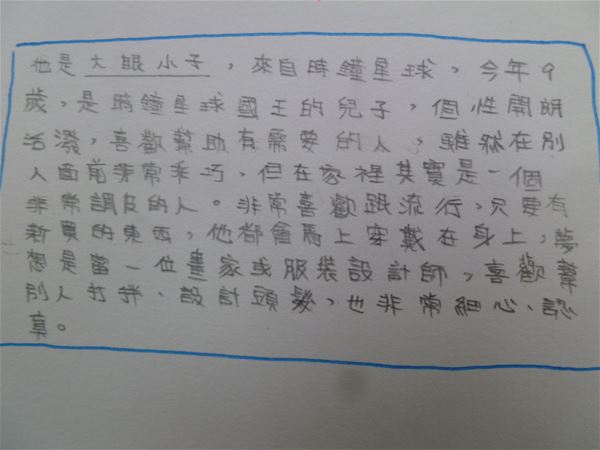 他是大眼小子，來自時鐘星球，今年9
歲，是時鐘星球國王的兒子，個性開朗
活潑，喜歡幫助有需要的人，雖然在別
人面前非常乖巧，但在家裡其實是一個
非常調皮的人。非常喜歡跟流行，只要有
新買的東西，他都會馬上穿戴在身上，夢
想是當一位畫家或服裝設計師，喜歡幫
別人打扮、設計頭髮，也非常細心、認
真。